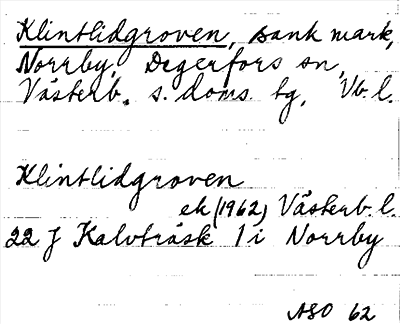 Klintlidgroven, sank mark,
Norrby, Degerfors sn,
Västerb. s. doms. tg, Vb. l.
Klintlidgroven
ek (1962) Västerb. l.
22 J Kalvträsk 1 i Norrby
ASO 62